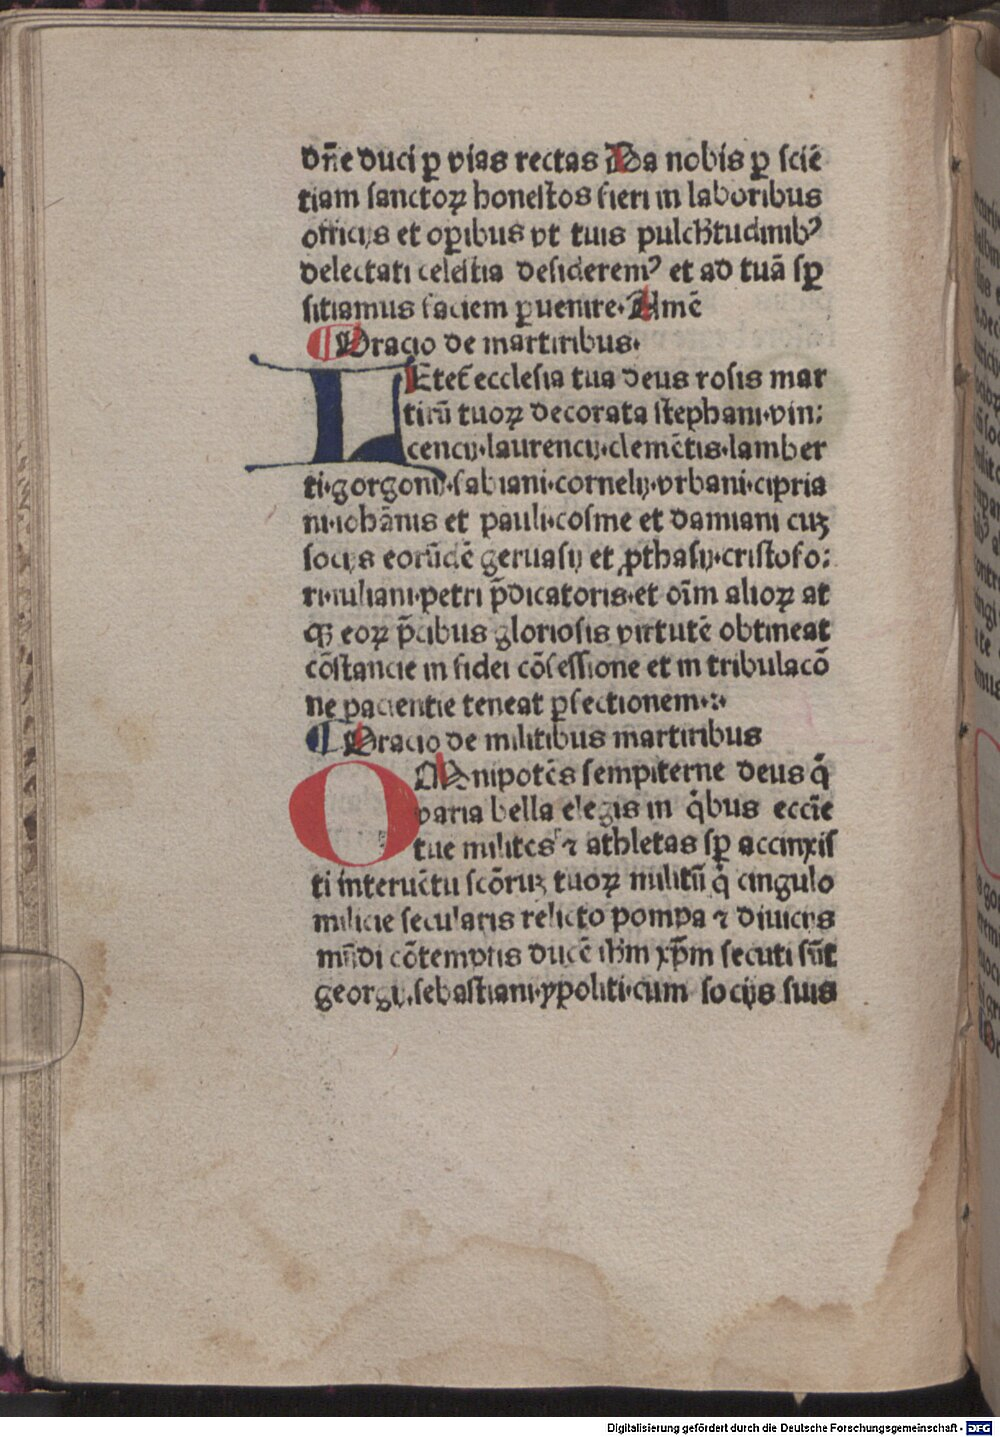 dn̄e duci ꝑ vias rectas Da nobis ꝑ sciē
tiam sanctoꝝ honestos fieri in laboribus
officijs et oꝑibus vt tuis pulcħtudinibꝰ
delectati celestia desideremꝰ et ad tuā sꝑ
sitiamus faciem ꝑuenire. Amē
Oracio de martiribus.
LEtet᷑ ecclesia tua deus rosis mar
tirū tuoꝝ decorata stephani.vin:
cencij.laurencij.clemētis.lamber
ti.gorgonij.fabiani.cornelij.vrbani.cipria
ni.iohānis et pauli.cosme et damiani cuꝫ
socijs eorūdē geruasij et ꝓthasij.cristofo:
ri.iuliani.petri p̄dicatoris.et oīm alioꝝ at
qꝫ eoꝝ p̄cibus gloriosis virtutē obtineat
cōstancie in fidei cōfessione et in tribulacō
ne paciencie teneat ꝑfectionem.:.
Oracio de militibus martiribus
OMnipotēs sempiterne deus q̇
varia bella elegis in q̇bus eccīe
tue milites ⁊ athletas sꝑ accinxis
ti interuētu scōruꝫ tuoꝝ militū q̇ cingulo
milicie secularis relicto pompa ⁊ diuicijs
mūdi cōtemptis ducē ihm̄ xp̄m secuti sūt
georgij.sebastiani.ypoliti.cum socijs suis
Digitalisierung gefördert durch die Deutsche Forschungsgemeinschaft - DFG